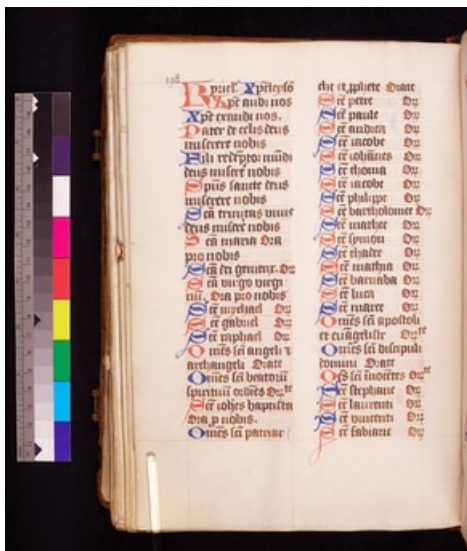 Kyriel. Xpeleyso
Xpe audi nos
Xpe exaudi nos.
Pater de celis deus
miserere nobis
Fili redēptor mūdi
deus miserē nobis
Spūs sancte deus
miserere nobis
Scā trinitas unus
deus miserē nobis
Scā maria Ora
pro nobis
Scā dei genitrix. Or
Scā virgo virgi
nū. Ora pro nobis
Scē mychael Or
Scē gabriel Or
Scē raphael Or
Omēs scī angeli et
archangeli Orate
Omēs scī beatorū
spirituū ordiēs Orte
Scē iohēs baptista
Ora p nobis.
Omēs scī patriar
che et, pphete Orate
Scē petre Or
Scē paule Or
Scē andrea Or
Scē iacobe Or
Scē iohānes Or
Scē thoma Or
Scē iacobe Or
Scē philippe Or
Scē bartholomee Or
Scē mathee Or
Scē symon Or
Scē thadee Or
Scē mathia Or
Scē barnaba Or
Scē luca Or
Scē marce Or
Omēs scī apostoli
et euāgeliste Orte
Omēs scī discipuli
domini Orate
Oēs scī inocētes Orte
Scē stephane Or
Scē laurenti Or
Scē vincenti Or
Scē fabiane Or